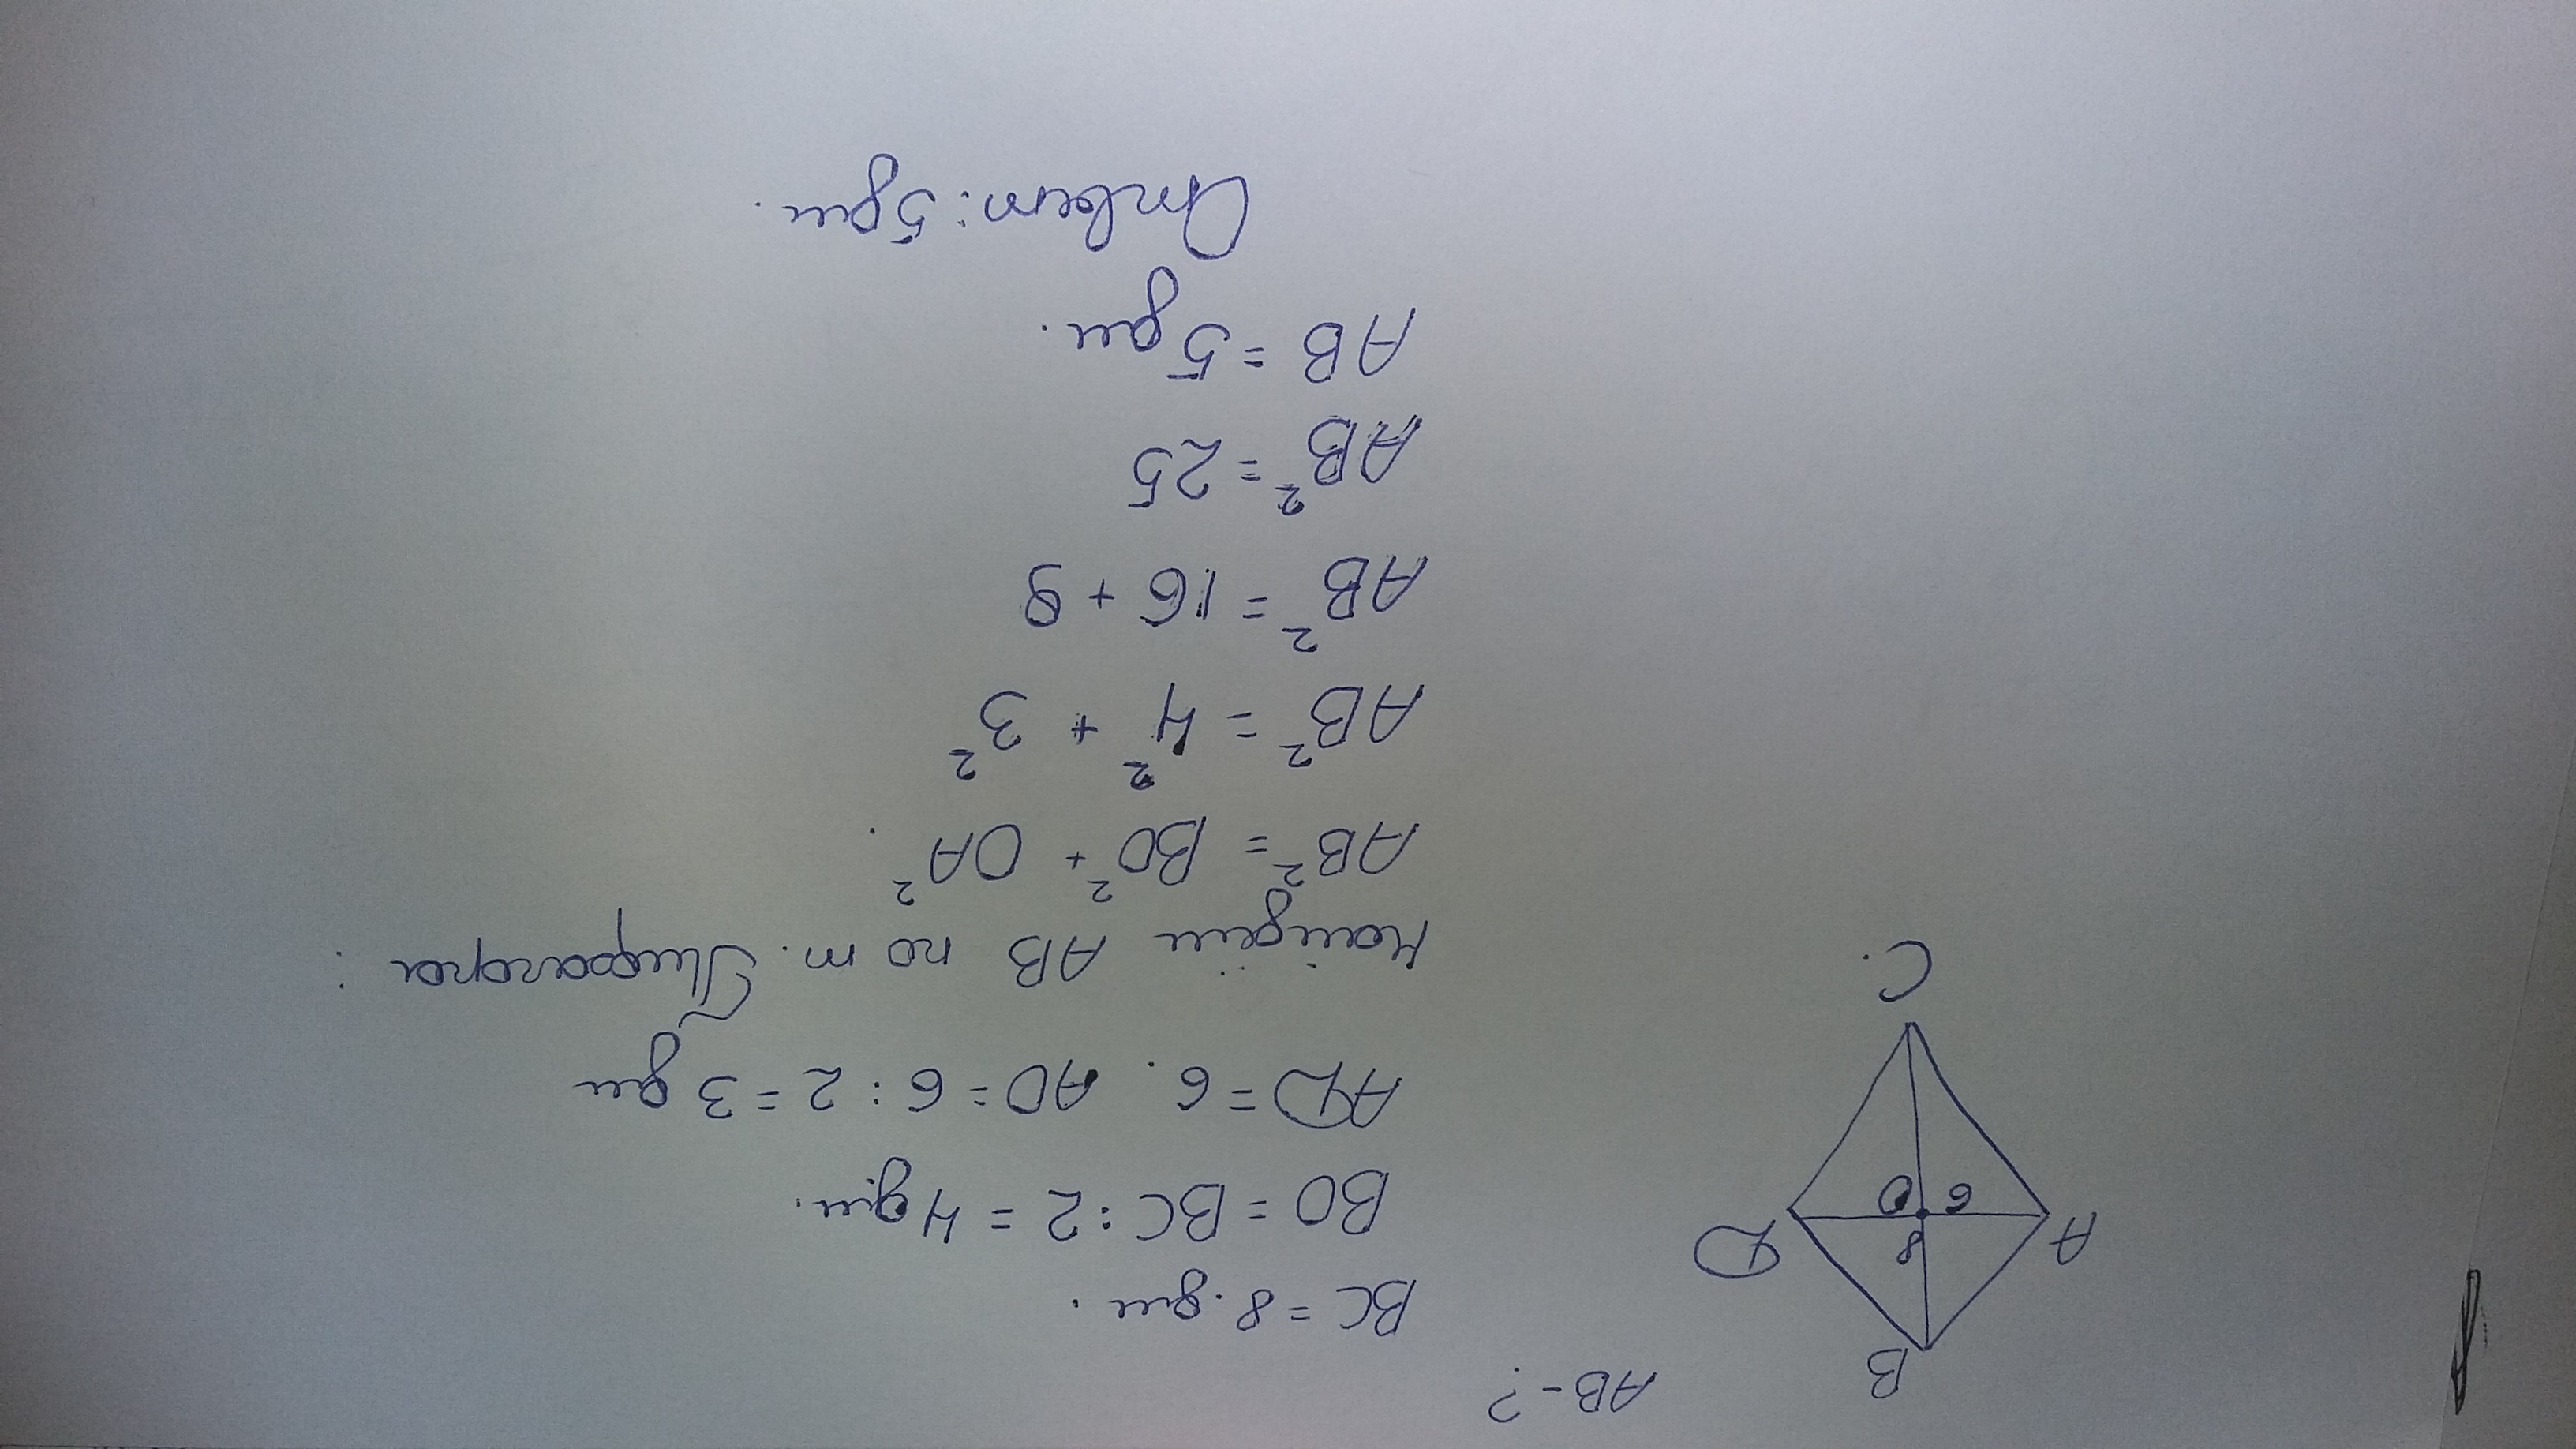 AB - ?
B
A
D
8
6
O
C.
BC = 8 дм.
BO = BC : 2 = 4 дм.
AD = 6. AO = 6 : 2 = 3 дм
Найдём AB по т. Пифагора:
AB² = BO² + OA².
AB² = 4² + 3²
AB² = 16 + 9
AB² = 25
AB = 5 дм.
Ответ: 5 дм.